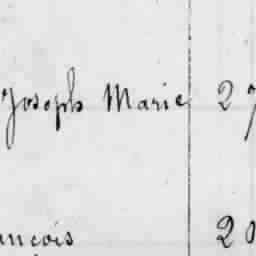 Joseph Marie 27
ançois 20